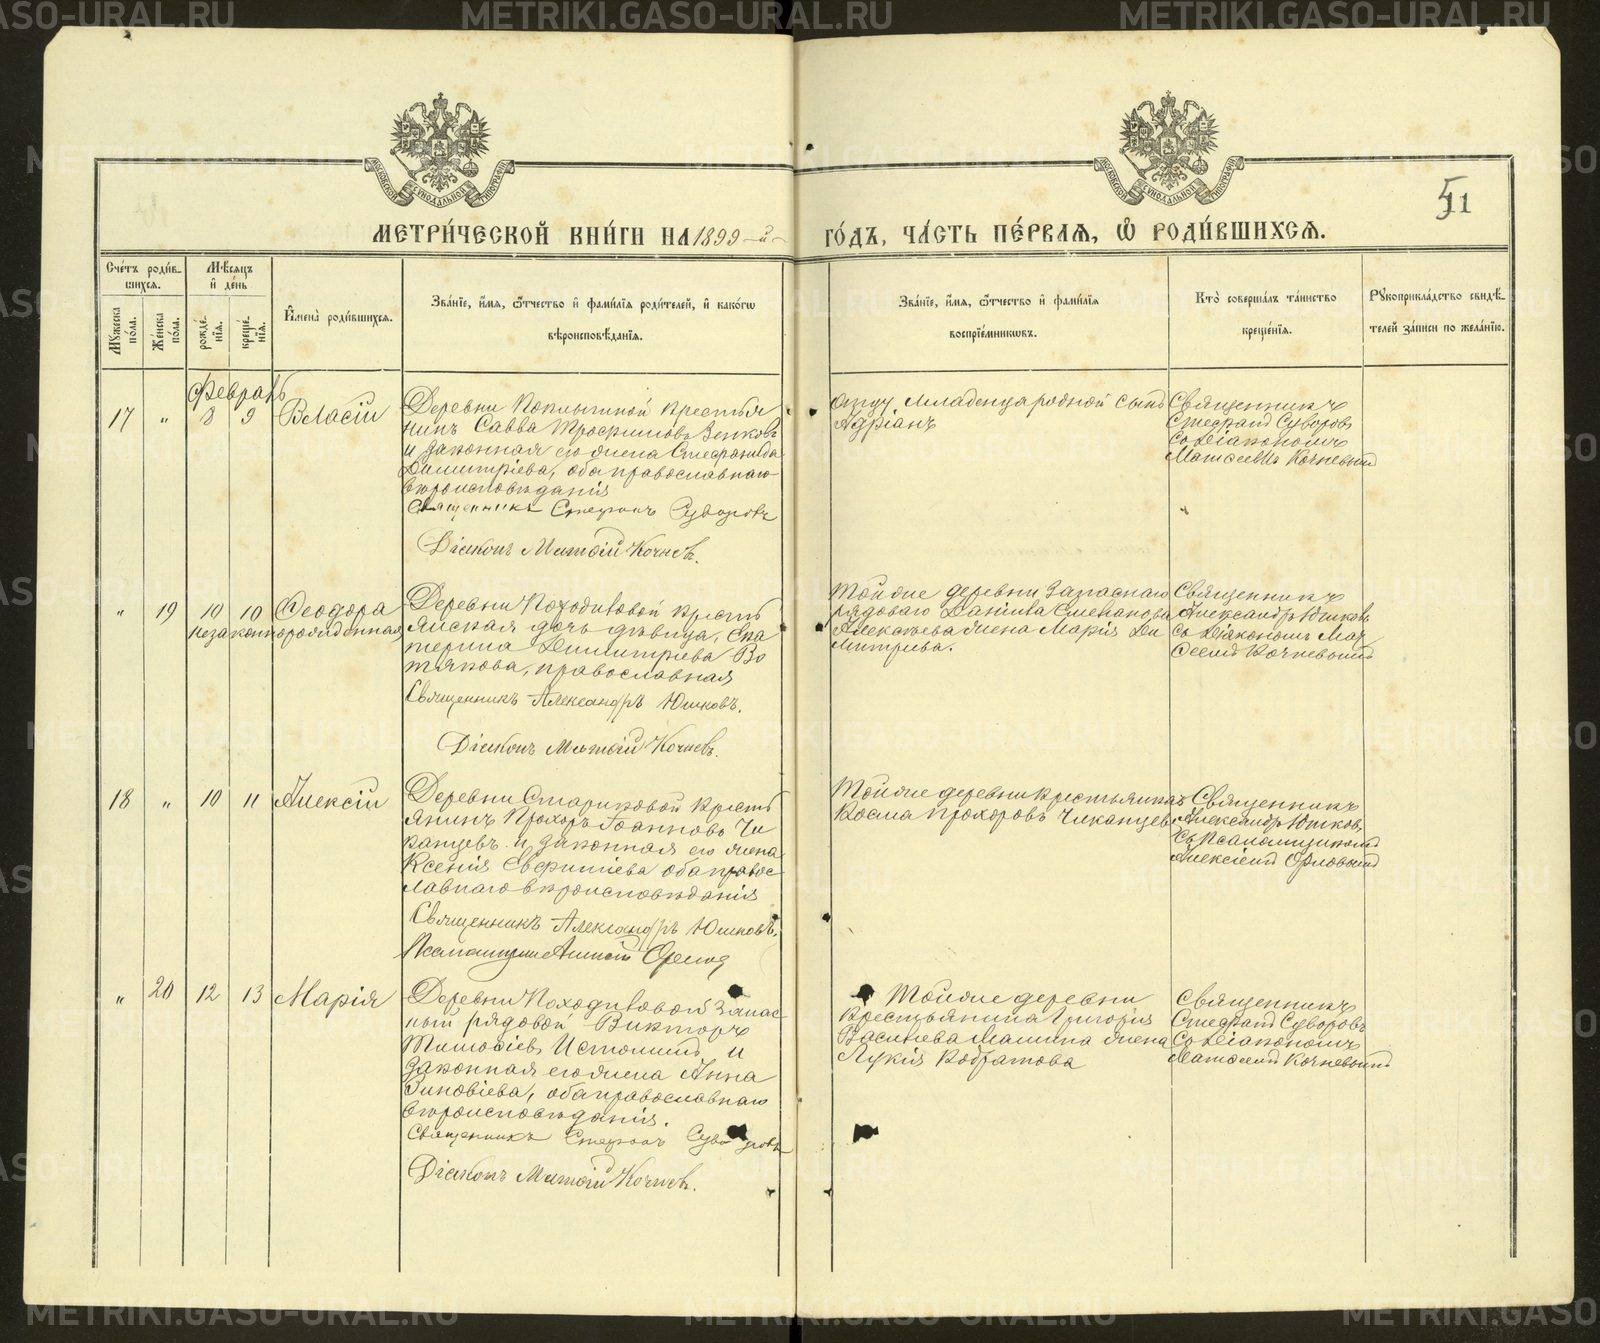 МЕТРИЧЕСКОЙ КНИГИ НА 1899-й
ГОДЪ, ЧАСТЬ ПЕРВАЯ, Ѡ РОДИВШИХСЯ.
51
Счетъ родив-
шихся.
Мѣсяцъ
и день
Имена родившихся.
Званіе, имя, ѿчество и фамилія родителей, и какогѡ
вѣроисповѣданія.
Званіе, имя, ѿчество и фамилія
воспріемниковъ.
Кто совершалъ таинство
крещенія.
Рукоприкладство свидѣ-
телей записи по желанію.
Мужеска
пола.
Женска
пола.
рожде-
нія.
креще-
нія.
Февраль
17 „ 8 9 Власій
Деревни крестья
нинъ Савва Трофимовъ
и законная его жена Стефанида
Димитріева, оба православнаго
вѣроисповѣданія
Священникъ Стефанъ Суворовъ
Діаконъ Матѳій Кочневъ.
отцу младенца родной сынъ
Адріанъ
Священникъ
Стефанъ Суворовъ
со Діакономъ
Матѳеемъ Кочневымъ
„ 19 10 10 Ѳеодора
незаконнорожденная
Деревни Походиловой кресть
янская дочь дѣвица, Ека
терина Димитріева Во
тякова, православная
Священникъ Александръ Юшковъ.
Діаконъ Матѳій Кочневъ.
Тойже деревни Запаснаго
рядоваго Даніила Степанова
Алексѣева жена Марія Ди
митріева.
Священникъ
Александръ Юшковъ
со Діакономъ Мат
ѳеемъ Кочневымъ
18 „ 10 11 Алексій
Деревни Стариковой кресть
янинъ Прохоръ Іоанновъ Че
канцевъ и законная его жена
Ксенія Евфиміева оба правос
лавнаго вѣроисповѣданія
Священникъ Александръ Юшковъ.
Псаломщикъ Алексій Орлов
Тойже деревни крестьянинъ
Косма Прохоровъ Чеканцевъ
Священникъ
Александръ Юшковъ,
съ Псаломщикомъ
Алексіемъ Орловымъ
„ 20 12 13 Марія
Деревни Походиловой Запас
ный рядовой Викторъ
Тимофіевъ Истоминъ и
законная его жена Анна
Зиновіева, оба православнаго
вѣроисповѣданія.
Священникъ Стефанъ Суворовъ
Діаконъ Матѳій Кочневъ.
Тойже деревни
крестьянина Григорія
Васильева Машина жена
Лукія Кодратова
Священникъ
Стефанъ Суворовъ
со Діакономъ
Матѳеемъ Кочневымъ